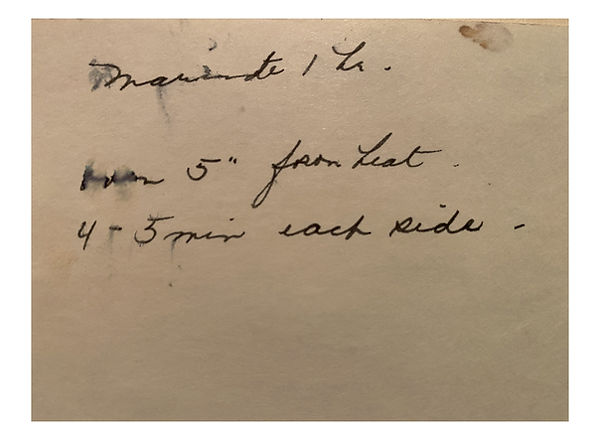 Marinate 1 hr.
5" from heat.
4-5 min each side -